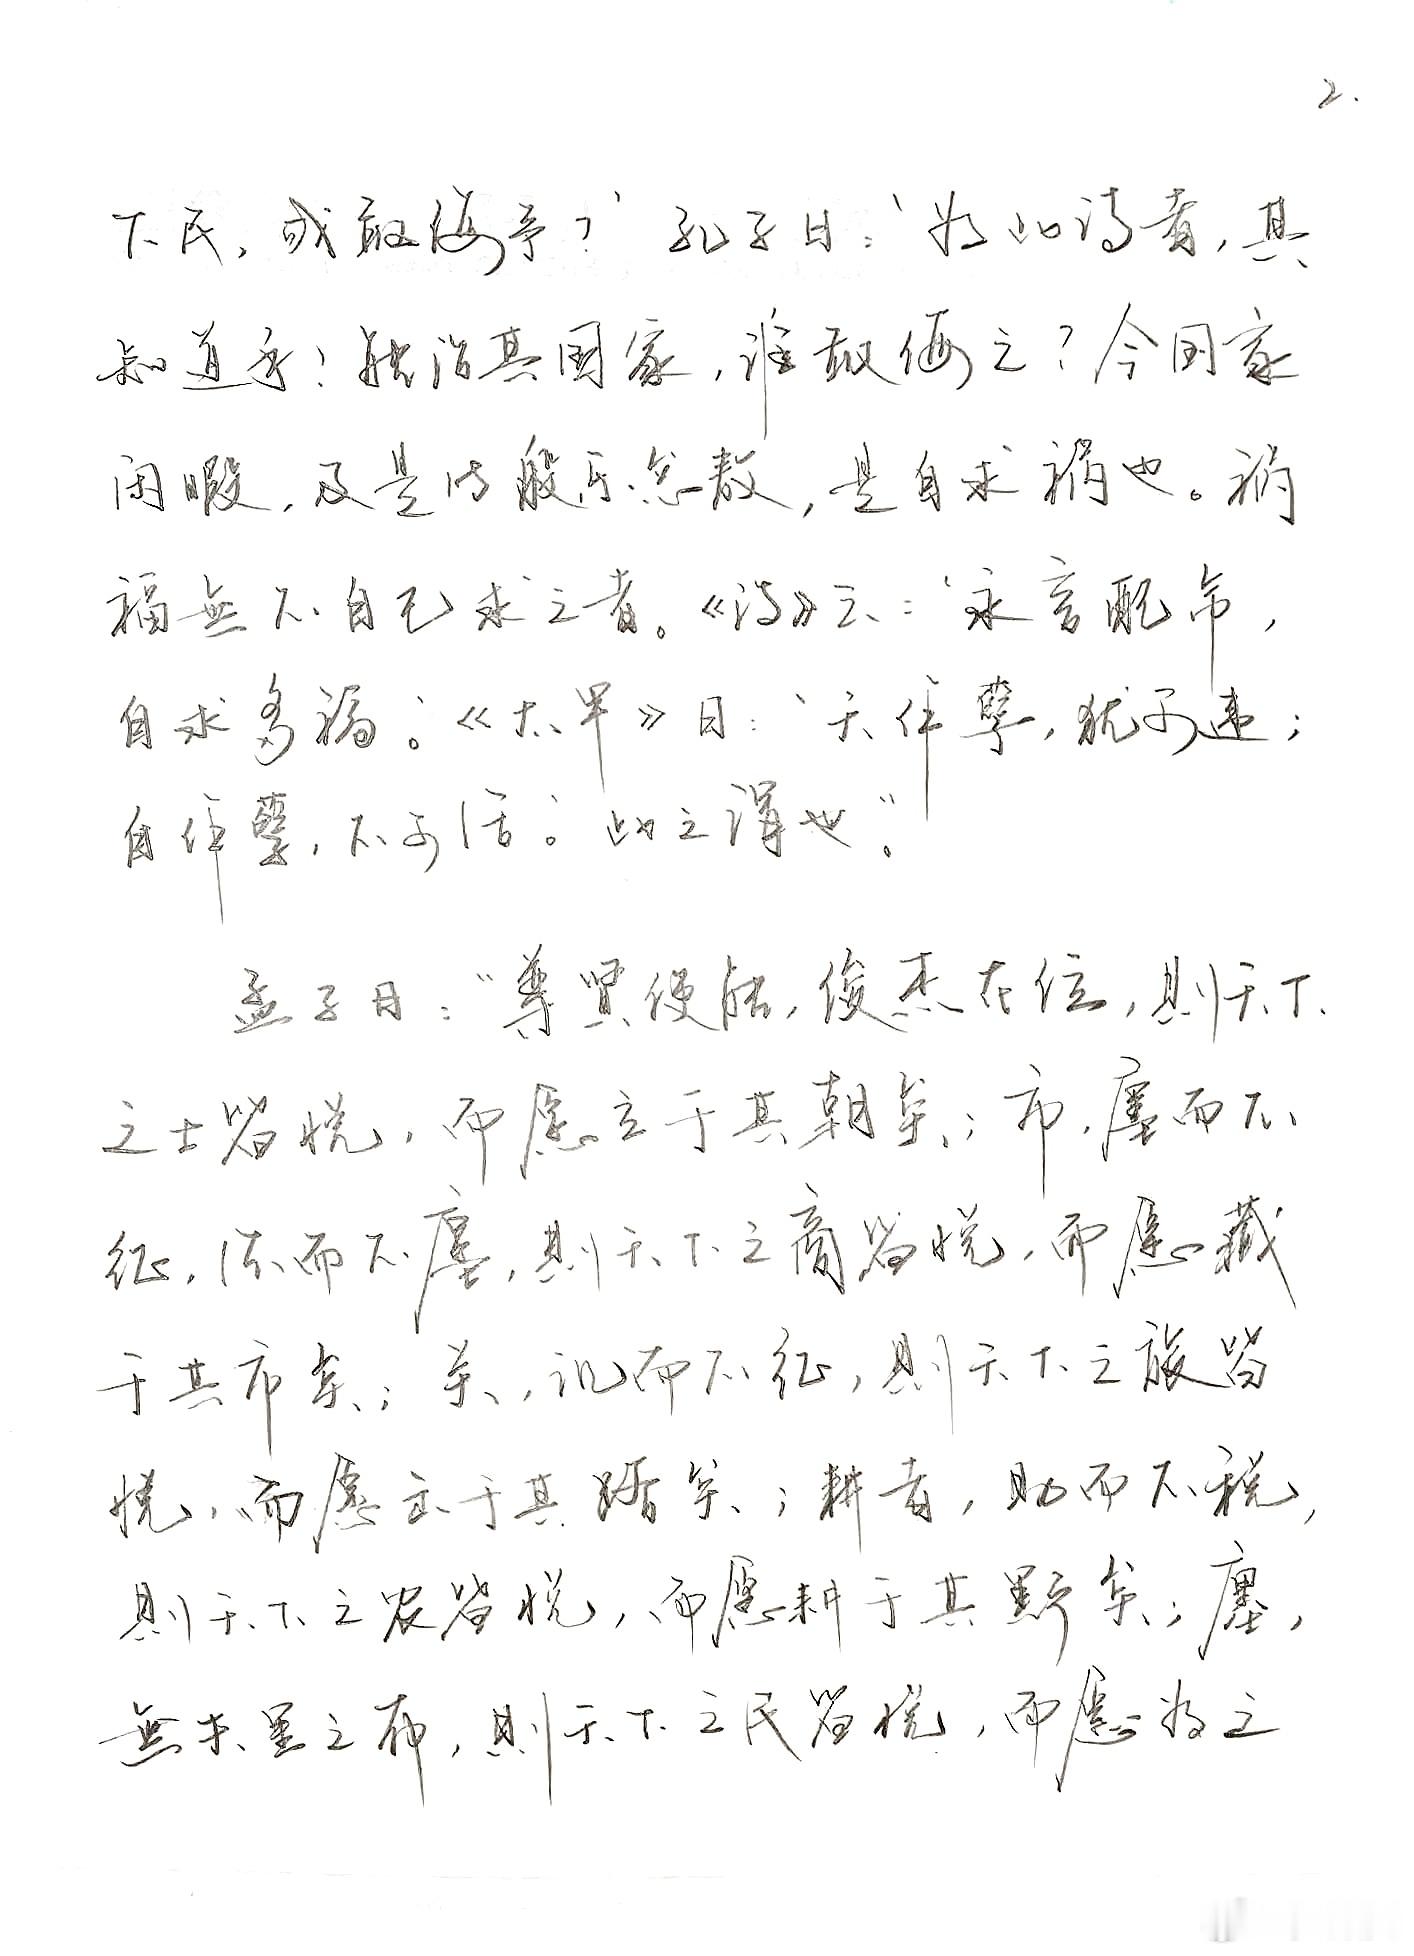 2.
下民，或敢侮予？’孔子曰：‘为此诗者，其
知道乎！能治其国家，谁敢侮之？今国家
闲暇，及是时般乐怠敖，是自求祸也。祸
福無不自己求之者。《诗》云：‘永言配命，
自求多福。’《太甲》曰：‘天作孽，犹可违；
自作孽，不可活。’此之谓也”。
孟子曰：“尊贤使能，俊杰在位，则天下
之士皆悦，而愿立于其朝矣；市，廛而不
征，法而不廛，则天下之商皆悦，而愿藏
于其市矣；关，讥而不征，则天下之旅皆
悦，而愿立于其路矣；耕者，助而不税，
则天下之农皆悦，而愿耕于其野矣；廛，
無夫里之布，则天下之民皆悦，而愿为之